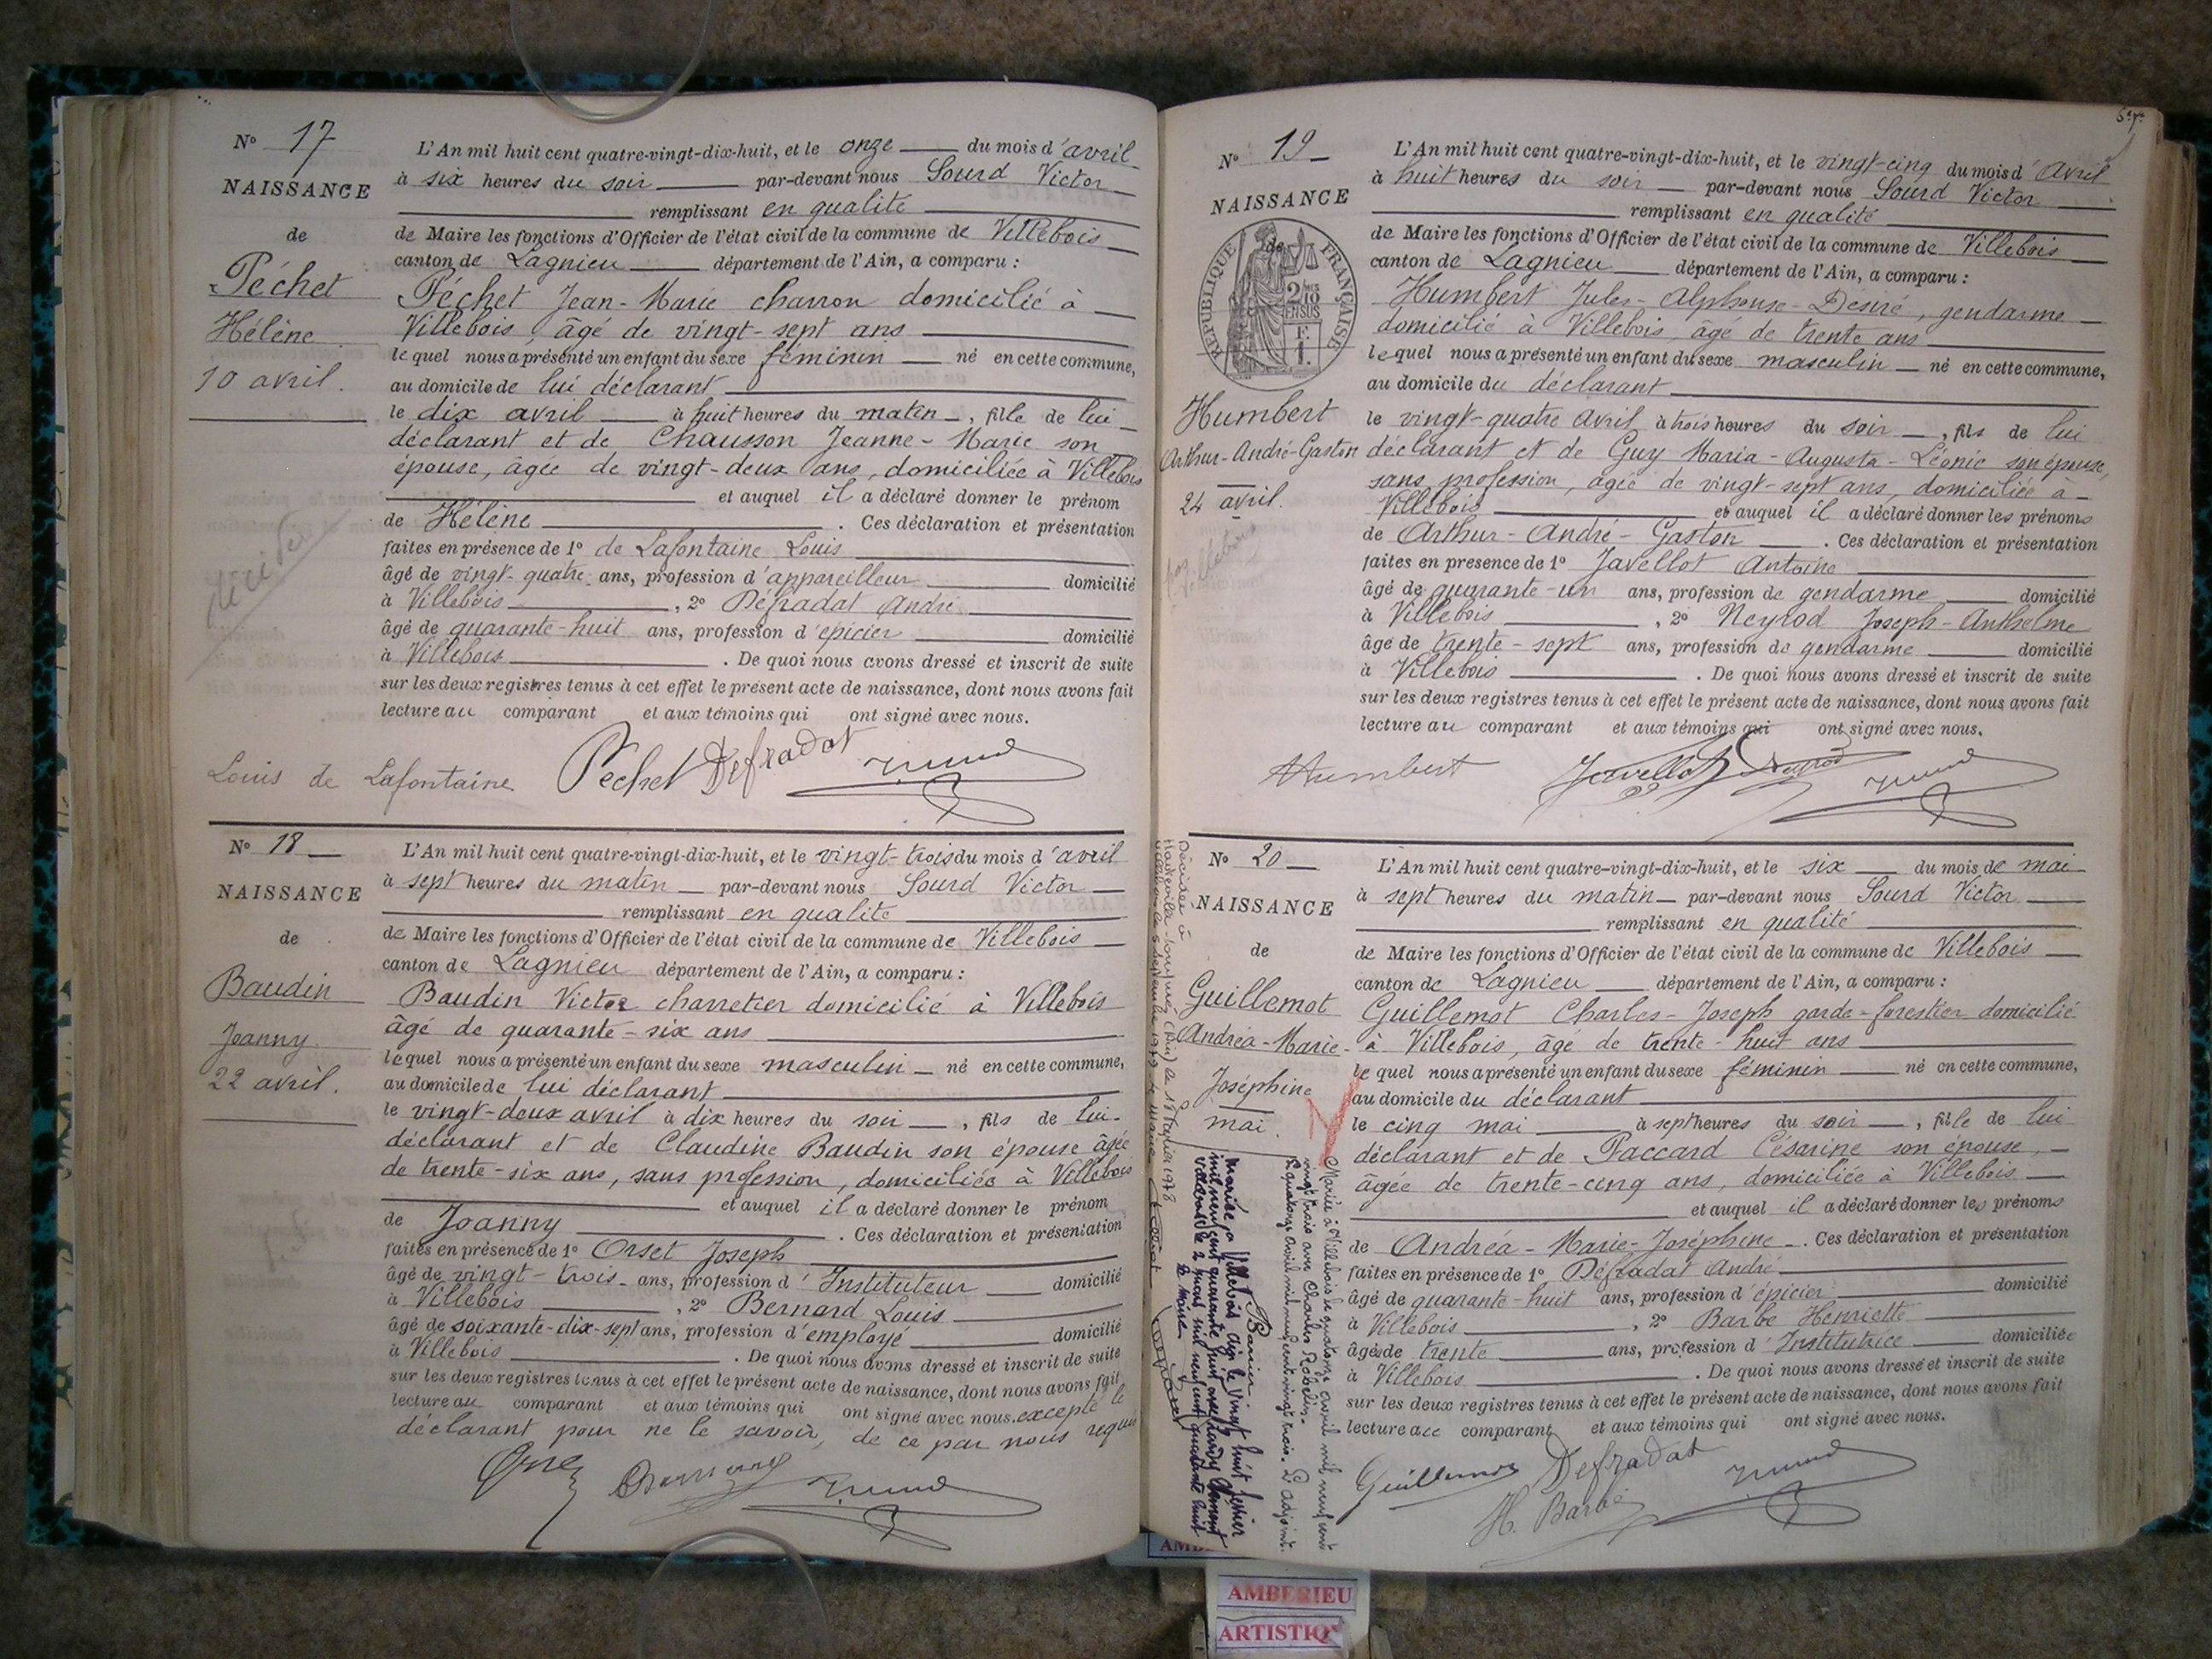 N° 17
NAISSANCE
de
Péchet
Hélène
10 avril.
décidée
L'An mil huit cent quatre-vingt-dix-huit, et le onze du mois d'avril
à six heures du soir par-devant nous Sourd Victor
remplissant en qualité
de Maire les fonctions d'Officier de l'état civil de la commune de Villebois
canton de Lagnieu département de l'Ain, a comparu :
Péchet Jean-Marie charron domicilié à
Villebois, âgé de vingt-sept ans
lequel nous a présenté un enfant du sexe féminin né en cette commune,
au domicile de lui déclarant
le dix avril à huit heures du matin, fille de lui
déclarant et de Chausson Jeanne-Marie son
épouse, âgée de vingt-deux ans, domiciliée à Villebois
et auquel il a déclaré donner le prénom
de Hélène. Ces déclaration et présentation
faites en présence de 1° de Lafontaine Louis
âgé de vingt-quatre ans, profession d'appareilleur domicilié
à Villebois, 2° Défradat André
âgé de quarante-huit ans, profession d'épicier domicilié
à Villebois. De quoi nous avons dressé et inscrit de suite
sur les deux registres tenus à cet effet le présent acte de naissance, dont nous avons fait
lecture au comparant et aux témoins qui ont signé avec nous.
Louis de Lafontaine Péchet Defradat
N° 18
NAISSANCE
de
Baudin
Joanny
22 avril.
L'An mil huit cent quatre-vingt-dix-huit, et le vingt-trois du mois d'avril
à sept heures du matin par-devant nous Sourd Victor
remplissant en qualité
de Maire les fonctions d'Officier de l'état civil de la commune de Villebois
canton de Lagnieu département de l'Ain, a comparu :
Baudin Victor charretier domicilié à Villebois
âgé de quarante-six ans
lequel nous a présenté un enfant du sexe masculin né en cette commune,
au domicile de lui déclarant
le vingt-deux avril à dix heures du soir, fils de lui
déclarant et de Claudine Baudin son épouse âgée
de trente-six ans, sans profession, domiciliée à Villebois
et auquel il a déclaré donner le prénom
de Joanny. Ces déclaration et présentation
faites en présence de 1° Orset Joseph
âgé de vingt-trois ans, profession d'Instituteur domicilié
à Villebois, 2° Bernard Louis
âgé de soixante-dix-sept ans, profession d'employé domicilié
à Villebois. De quoi nous avons dressé et inscrit de suite
sur les deux registres tenus à cet effet le présent acte de naissance, dont nous avons fait
lecture au comparant et aux témoins qui ont signé avec nous. excepté le
déclarant pour ne le savoir, de ce par nous requis
N° 19
NAISSANCE
de
RÉPUBLIQUE FRANÇAISE
Humbert
Arthur-André-Gaston
24 avril.
L'An mil huit cent quatre-vingt-dix-huit, et le vingt-cinq du mois d'Avril
à huit heures du soir par-devant nous Sourd Victor
remplissant en qualité
de Maire les fonctions d'Officier de l'état civil de la commune de Villebois
canton de Lagnieu département de l'Ain, a comparu :
Humbert Jules-Alphonse-Desiré, gendarme
domicilié à Villebois, âgé de trente ans
lequel nous a présenté un enfant du sexe masculin né en cette commune,
au domicile du déclarant
le vingt-quatre avril à trois heures du soir, fils de lui
déclarant et de Guy Maria-Augusta-Léonie son épouse,
sans profession, âgée de vingt-sept ans, domiciliée à
Villebois et auquel il a déclaré donner les prénoms
de Arthur-André-Gaston. Ces déclaration et présentation
faites en présence de 1° Javellot Antoine
âgé de quarante-un ans, profession de gendarme domicilié
à Villebois, 2° Neyrod Joseph-Anthelme
âgé de trente-sept ans, profession de gendarme domicilié
à Villebois. De quoi nous avons dressé et inscrit de suite
sur les deux registres tenus à cet effet le présent acte de naissance, dont nous avons fait
lecture au comparant et aux témoins qui ont signé avec nous.
Humbert Javellot Neyrod
N° 20
NAISSANCE
de
Guillemot
Andréa-Marie-
Joséphine
mai.
L'An mil huit cent quatre-vingt-dix-huit, et le six du mois de mai
à sept heures du matin par-devant nous Sourd Victor
remplissant en qualité
de Maire les fonctions d'Officier de l'état civil de la commune de Villebois
canton de Lagnieu département de l'Ain, a comparu :
Guillemot Charles-Joseph garde-forestier domicilié
à Villebois, âgé de trente-huit ans
lequel nous a présenté un enfant du sexe féminin né en cette commune,
au domicile du déclarant
le cinq mai à sept heures du soir, fille de lui
déclarant et de Paccard Césarine son épouse,
âgée de trente-cinq ans, domiciliée à Villebois
et auquel il a déclaré donner les prénoms
de Andréa-Marie-Joséphine. Ces déclaration et présentation
faites en présence de 1° Défradat André
âgé de quarante-huit ans, profession d'épicier domicilié
à Villebois, 2° Barbe Henriette
âgée de trente ans, profession d'Institutrice domiciliée
à Villebois. De quoi nous avons dressé et inscrit de suite
sur les deux registres tenus à cet effet le présent acte de naissance, dont nous avons fait
lecture au comparant et aux témoins qui ont signé avec nous.
Guillemot Defradat
H. Barbe
Mariée à Villebois le quatorze avril mil neuf cent
vingt trois avec Charles
Le quatorze avril mil neuf cent vingt trois. L'adjoint.
Mariée à Villebois Ain le vingt huit février
mil neuf cent quarante huit avec
Villebois le 2 mars mil neuf cent quarante huit
Le Maire
Décédée à
Hauteville-Lompnes (Ain) le
AMBERIEU
ARTISTIQ